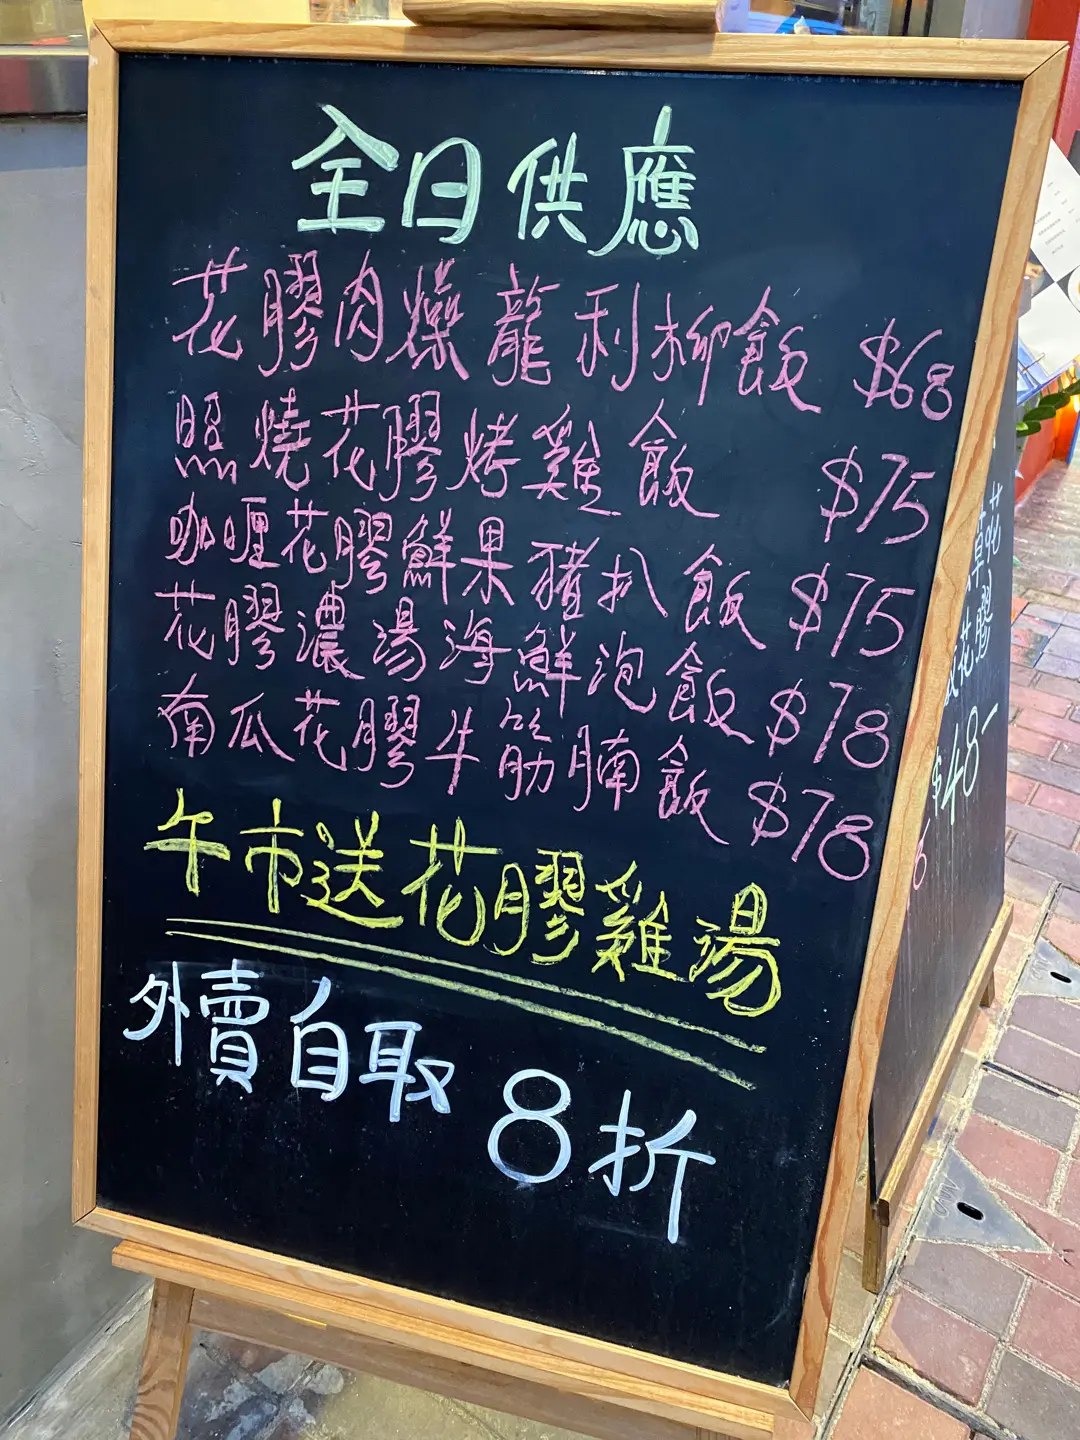 全日供應
花膠肉燥龍利柳飯 $68
照燒花膠烤雞飯 $75
咖喱花膠鮮果豬扒飯 $75
花膠濃湯海鮮泡飯 $78
南瓜花膠牛筋腩飯 $78
午市送花膠雞湯
外賣自取 8折
草花
花膠
$48-